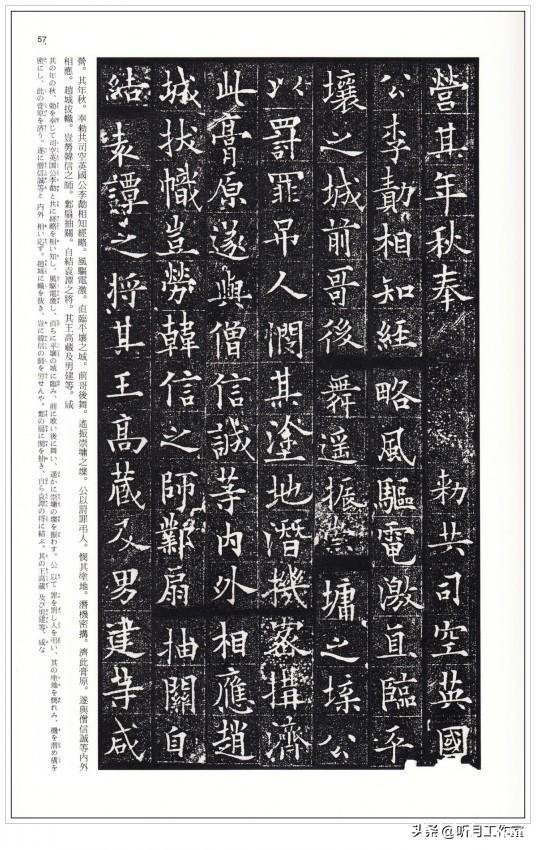 營其年秋奉 勑共司空英國
公李勣相知經略風驅電激直臨平
壤之城前哥後舞遥振崇墉之堞公
以罸罪吊人憫其塗地潛機密搆濟
此膏原遂與僧信誠等内外相應趙
城拔幟豈勞韓信之師鄴扇抽關自
結袁譚之将其王高蔵及男建等咸
營。其年秋。奉勅共司空英國公李勣相知經略。風驅電激。直臨平壤之城。前哥後舞。遙振崇墉之堞。公以罸罪弔人。憫其塗地。潛機密搆。濟此膏原。遂與僧信誠等内外
相應。趙城拔幟。豈勞韓信之師。鄴扇抽關。自結袁譚之將。其王高藏及男建等。咸
其の年の秋、勅を奉じて司空英国公李勣と共に経略を相い知し、風駆電激し、直ちに平壌の城に臨み、前に歌い後に舞い、遥かに崇墉の堞を振わす。公以て罪を罰し人を弔い、其の塗地を憫れみ、機を潜め構を
密にし、此の膏原を済う。遂に僧信誠等と内外相い応ず。趙城に幟を抜き、豈に韓信の師を労せんや。鄴の扇に関を抽き、自ら袁譚の将に結ぶ。其の王高蔵及び男建等、咸な
57
头条@听月工作室